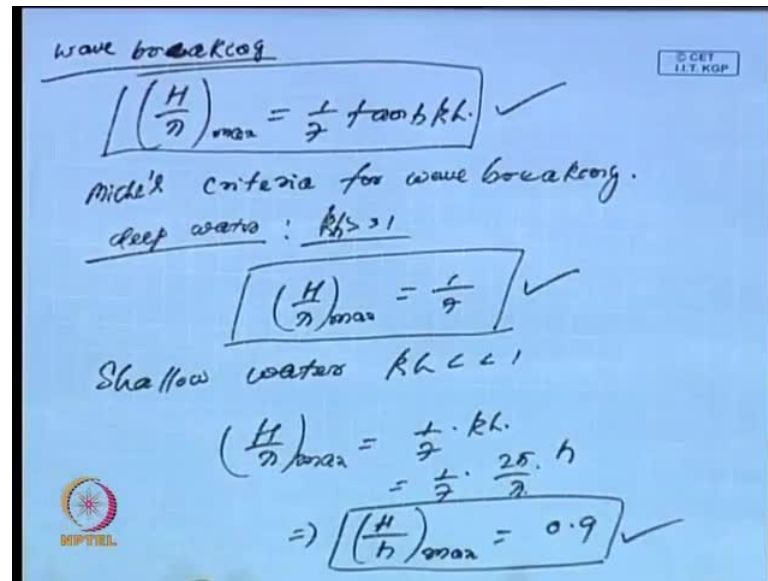 wave breaking
© CET
I.I.T. KGP
(H/λ)max = 1/7 tanh kh.
Miche's criteria for wave breaking.
deep water : kh >> 1
(H/λ)max = 1/7
Shallow water kh << 1
(H/λ)max = 1/7 · kh.
= 1/7 · 2π/λ · h
=> (H/h)max = 0.9
NPTEL